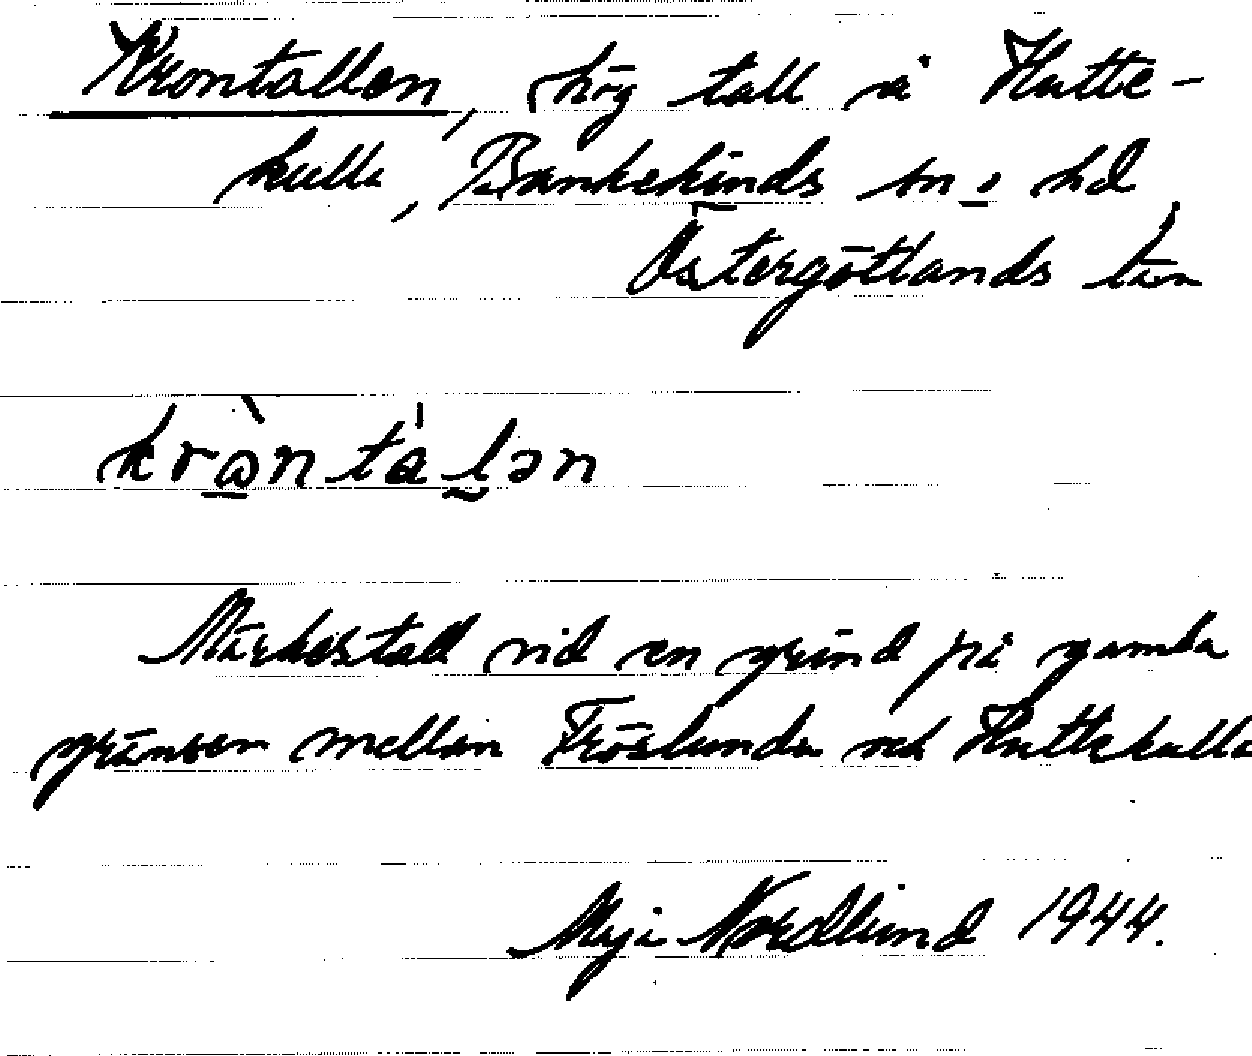 Krontallen, hög tall å Hutte-
kulla, Bankekinds sn o hd
Östergötlands län
krò̱ntálən
Märkestall vid en grind på gamla
gränsen mellan Fröslunda och Huttekulla
Maja Nordlund 1944.